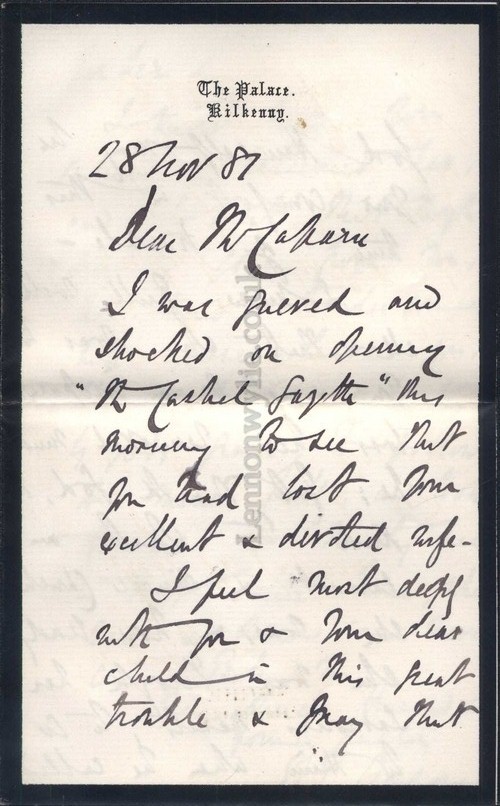 The Palace.
Kilkenny.
28 Nov 81
Dear Mr
I was grieved and
shocked on opening
"The Cashel Gazette" this
morning to see that
you had lost your
excellent & devoted wife -
I feel most deeply
with you & your dear
child in this great
trouble & pray that
Lennonwylie.co.uk